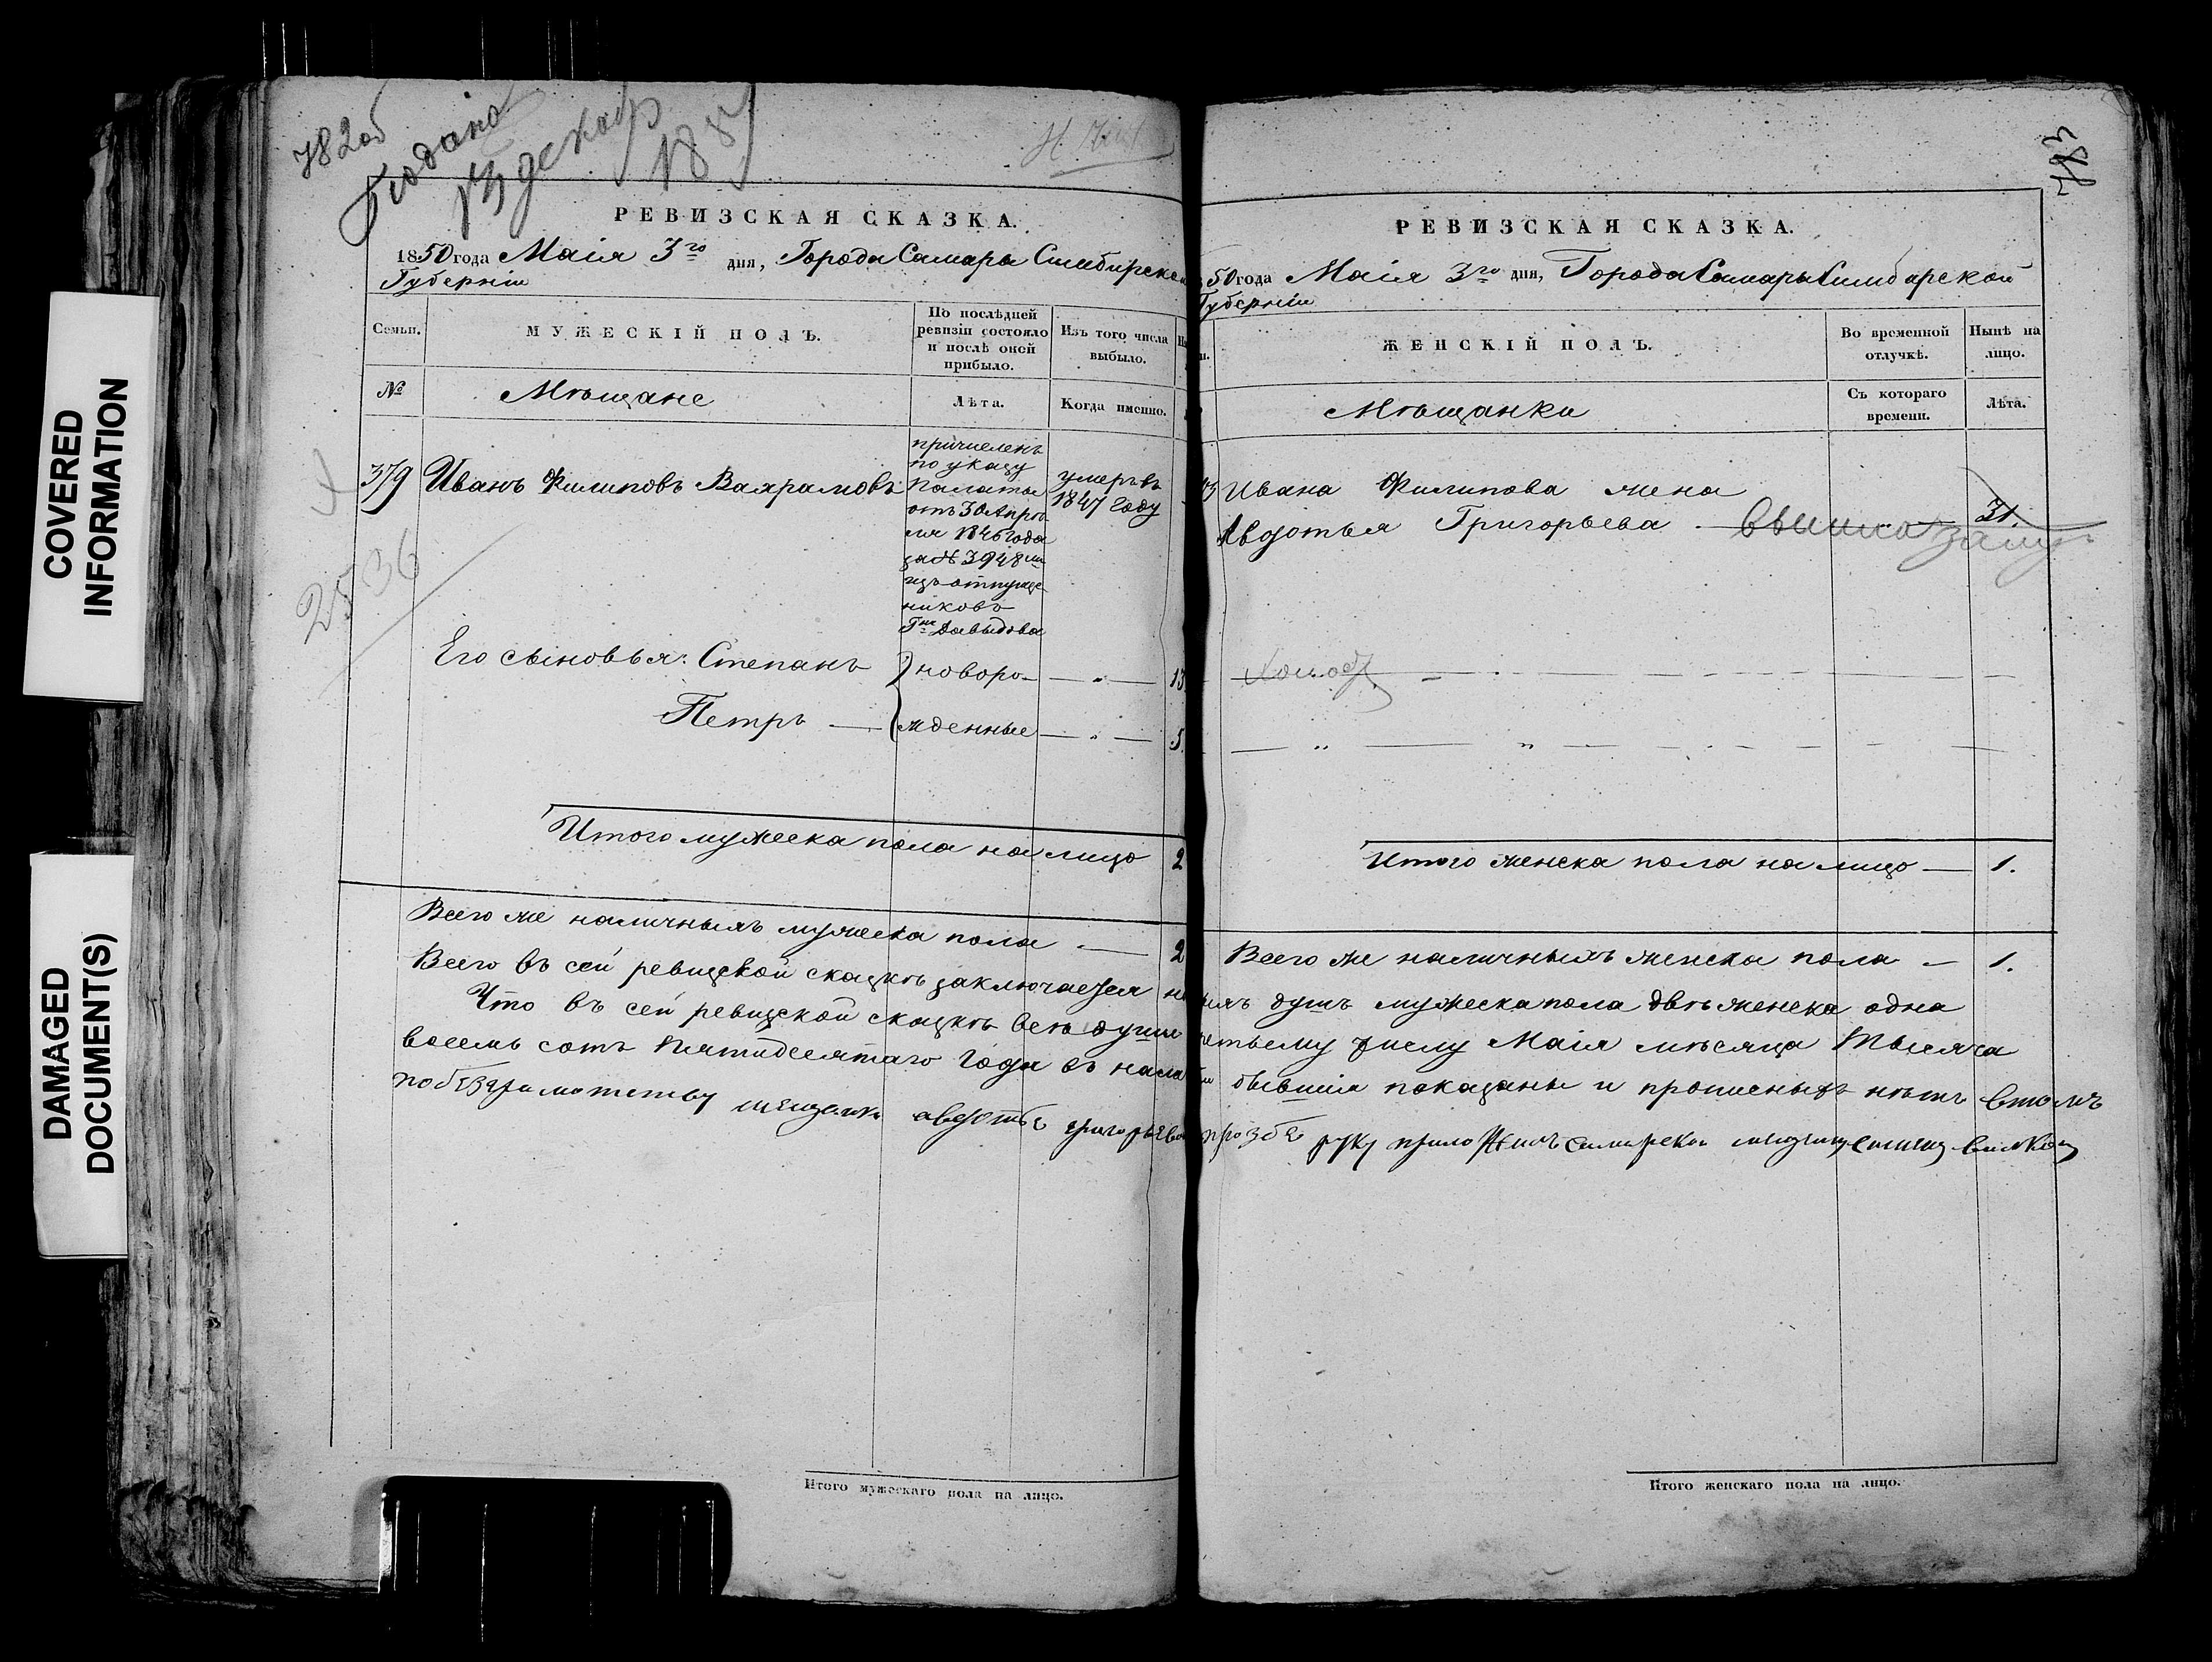 COVERED
INFORMATION
DAMAGED
DOCUMENT(S)
782об
Подано
13 декабр
185
РЕВИЗСКАЯ СКАЗКА.
1850 года Маія 3го дня, Города Самары Симбирской
Губерніи
Семьи.
МУЖЕСКІЙ ПОЛЪ.
По послѣдней
ревизіи состояло
и послѣ оной
прибыло.
Изъ того числа
выбыло.
№
Мѣщане
Лѣта.
Когда именно.
379 Иванъ Филиповъ Вахрамовъ
причисленъ
по указу
Палаты
отъ 30 Апрѣ
ля 1846 года
за № 3948м
изъ отпуще
никовъ
Гна Давыдова
умеръ въ
1847 году
2536
Его сыновья: Степанъ } новоро- — „ — 13
Петръ — жденные — „ — 5.
Итого мужеска пола на лицо 2
Всего же наличныхъ мужеска пола — 2
Всего въ сей ревизской сказкѣ заключается на
Что въ сей ревизской сказкѣ всѣ души
восемь сотъ пятидесятаго года въ нали
по безграмотству мещанки авдотьи григорьевой
Итого мужескаго пола на лицо.
783
РЕВИЗСКАЯ СКАЗКА.
50 года Маія 3го дня, Города Самары Симбирской
Губерніи
ЖЕНСКІЙ ПОЛЪ.
Во временной
отлучкѣ.
Нынѣ на
лицо.
Мѣщанки
Съ котораго
времени.
Лѣта.
Ивана Филипова жена
Авдотья Григорьева — вышла замуж 31.
Итого женска пола на лицо — 1.
Всего же наличныхъ женска пола — 1.
ныхъ душъ мужеска пола двѣ женска одна
третьему числу Маія мѣсяца Тысяча
бывшія показаны и прописныхъ нѣтъ Втомъ
прозбе руку приложилъ самарской мещенинъ
Итого женскаго пола на лицо.